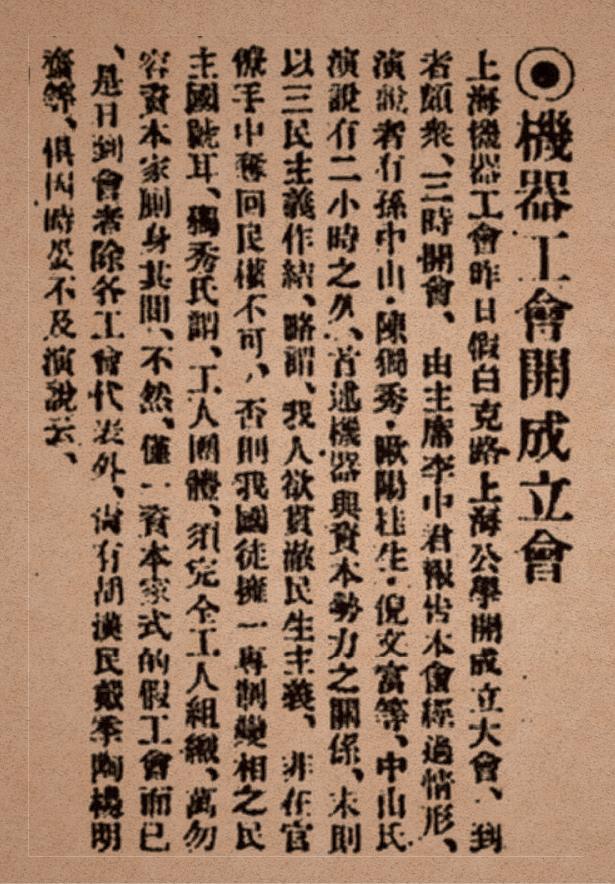 機器工會開成立會
上海機器工會昨日假白克路上海公學開成立大會、到
者頗衆、三時開會、由主席李中君報告本會經過情形、
演說者有孫中山·陳獨秀·歐陽桂生·倪文富等、中山氏
演說有二小時之久、首述機器與資本勢力之關係、末則
以三民主義作結、略謂、我人欲貫澈民生主義、非在官
僚手中奪回民權不可、否則我國徒擁一專制變相之民
主國號耳、獨秀氏謂、工人團體、須完全工人組織、萬勿
容資本家廁身其間、不然、僅一資本家式的假工會而已
、是日到會者除各工會代表外、尙有胡漢民戴季陶楊明
齋等、俱因時晏不及演說云、